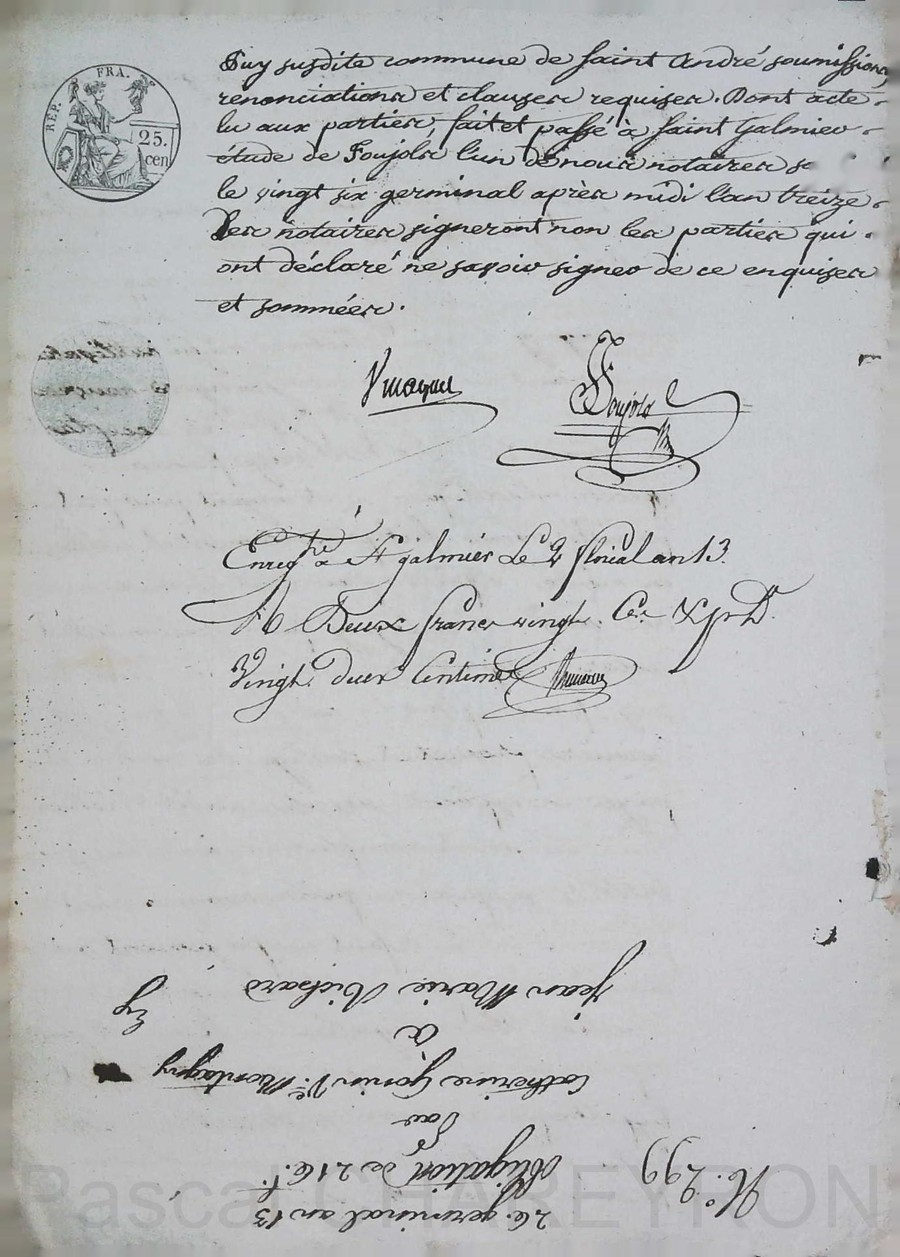 REP. FRA.
25.
cen
Puy susdite commune de saint André soumissions
renonciations et clauses requises. Dont acte
lu aux parties, fait et passé à saint Galmier
étude de Foujols l'un de nous notaires
le vingt six germinal après midi l'an treize.
Les notaires signeront non les parties qui
ont déclaré ne savoir signer de ce enquises
et sommées.
Foujols
Enreg.ré à St galmier Le 2 floréal an 13.
Deux francs vingt C.
Vingt deux Centimes
26. germinal an 13
N.o 299
obligation de 216.f
Par
Catherine Gonin V.e Montagny
a
jean Marie Richard
Pascal CHAREYRON